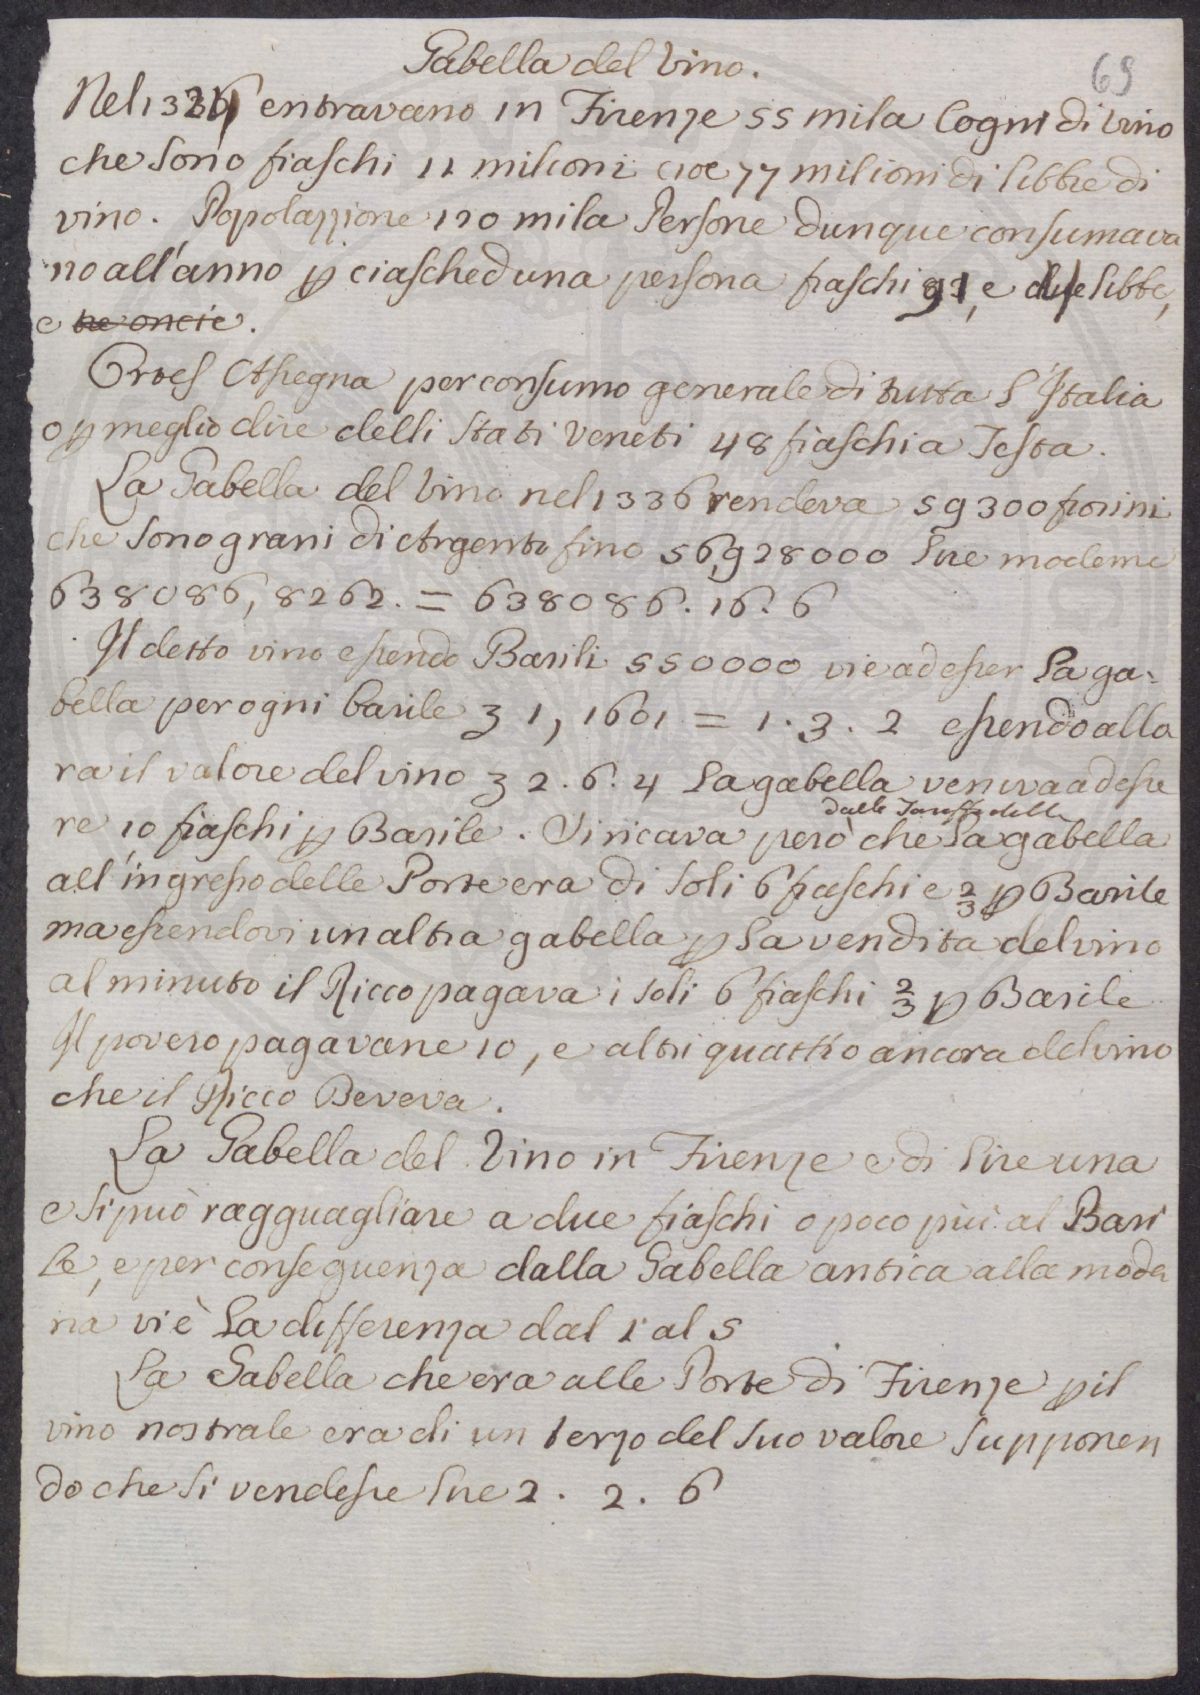 Gabella del Vino.
69
Nel entravano in Firenze 55 mila Cogni di Vino
che sono fiaschi 11 milioni cioe 77 milioni di libbre di
vino. Popolazzione 120 mila Persone dunque consumava
no all'anno p ciascheduna persona fiaschi 91, e libbe,
e tre oncie.
Ortes Assegna per consumo generale di tutta l'Italia
o p meglio dire delli Stati Veneti 48 fiaschi a Testa.
La Gabella del Vino nel 1336 rendeva 59300 fiorini
che sono grani di Argento fino 56,928000 lire moderne
638086,8262. = 638086. 16. 6
Il detto vino essendo Barili 550000 vie ad esser la ga=
bella per ogni barile 3 1, 1601 = 1. 3. 2 essendo allo
ra il valore del vino 3 2. 6. 4 la gabella veniva ad esse
re 10 fiaschi p Barile. Si ricava però dalle Tariffe delle che la gabella
all'ingresso delle Porte era di soli 6 fiaschi e 2/3 p Barile
ma essendovi un altra gabella p la vendita del vino
al minuto il Ricco pagava i soli 6 fiaschi 2/3 p Barile
Il povero pagavane 10, e altri quattro ancora del vino
che il Ricco Beveva.
La Gabella del Vino in Firenze e di lire una
e si può ragguagliare a due fiaschi o poco più al Bari
le, e per conseguenza dalla Gabella antica alla moder
na vi è la differenza dal 1 al 5
La Gabella che era alle Porte di Firenze p il
vino nostrale era di un terzo del suo valore supponen
do che si vendesse lire 2. 2. 6